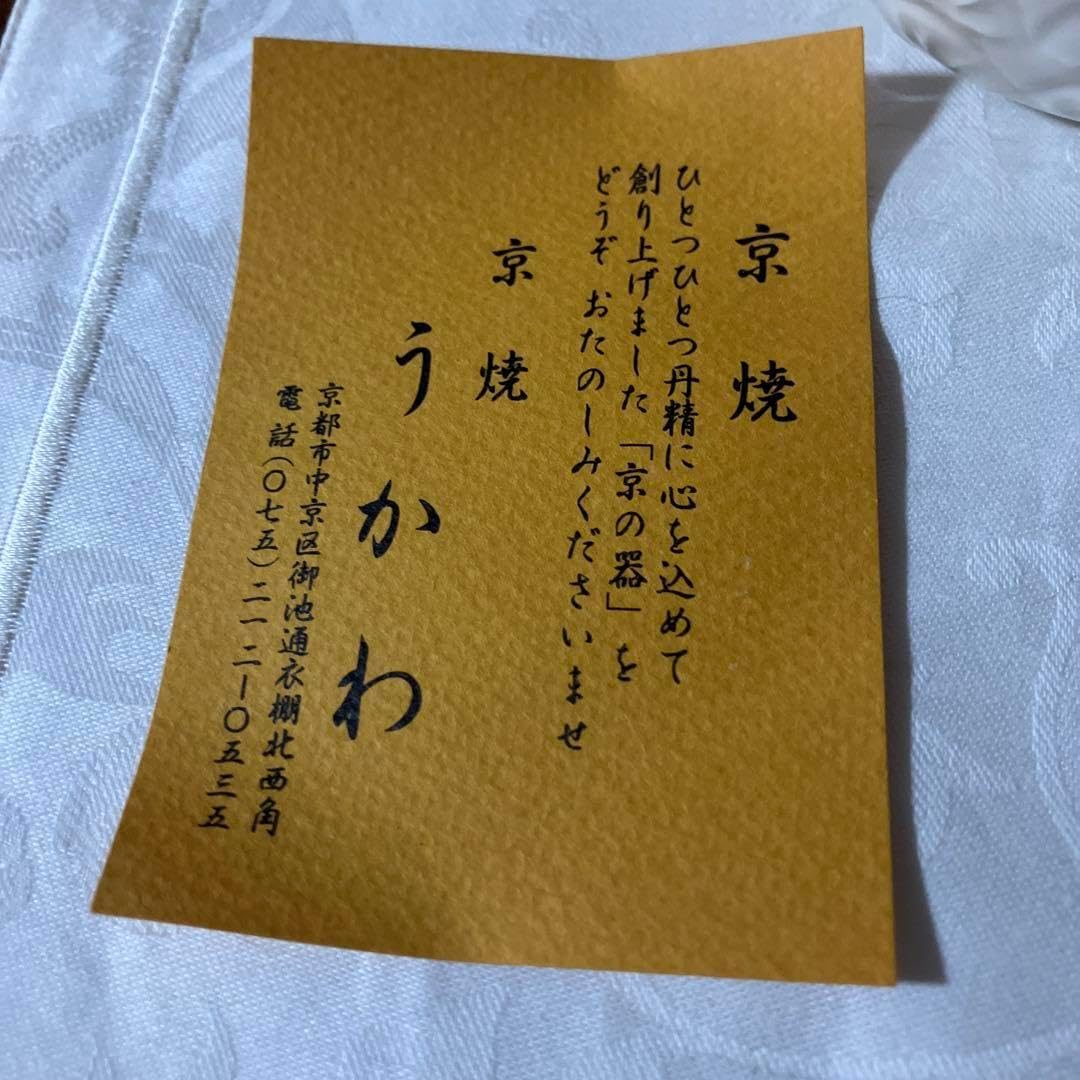 京焼
ひとつひとつ丹精に心を込めて
創り上げました「京の器」を
どうぞ おたのしみくださいませ
京焼
うかわ
京都市中京区御池通衣棚北西角
電話(〇七五)二一二ー〇五三五